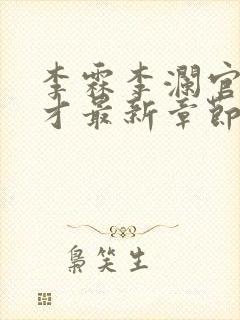 李霖李澜官
才最新章節
梟笑生